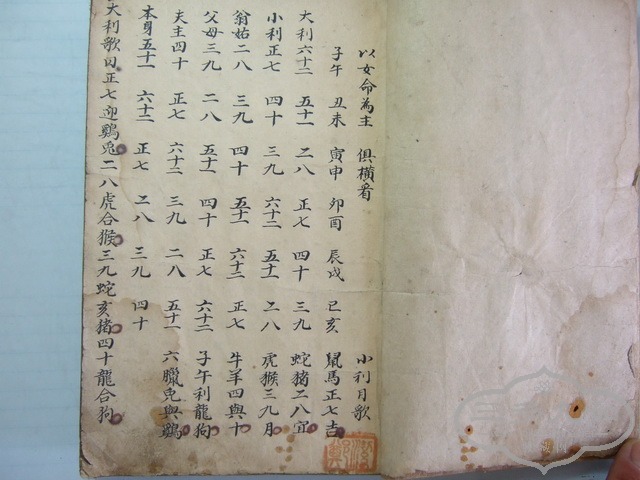 以女命為主 俱橫看 小利月歌
子午 丑未 寅申 卯酉 辰戌 巳亥 鼠馬正七吉
大利六十二 五十一 二八 正七 四十 三九 蛇猪二八宜
小利正七 四十 三九 六十二 五十一 二八 虎猴三九月
翁姑二八 三九 四十 五十一 六十二 正七 牛羊四與十
父母三九 二八 五十一 四十 正七 六十二 子午利龍狗
夫主四十 正七 六十二 三九 二八 五十一 六臘兎與鷄
本身五十一 六十二 正七 二八 三九 四十
大利歌曰正七迎鷄兎二八虎合猴三九蛇亥猪四十龍合狗